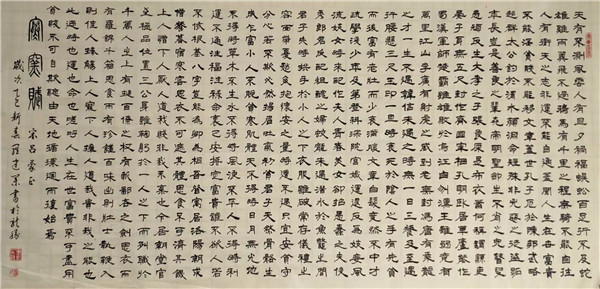 天有不測風雲人有旦夕禍福蜈蚣百足行不及蛇
雄雞兩翼飛不過鴉馬有千里之程無騎不能自往
人有衝天之志非運不能自通蓋聞人生在世富貴
不能淫貧賤不能移文章蓋世孔子厄於陳邦武略
超群太公釣於渭水顏淵命短殊非兇惡之徒盜跖
年長豈是善良之輩堯帝明聖卻生不肖之兒瞽叟
愚頑反生大孝之子張良原是布衣蕭何稱謂縣吏
晏子身無五尺封作齊國宰相孔明臥居草廬能作
蜀漢軍師楚霸雖雄敗於烏江自刎漢王雖弱竟有
萬里江山李廣有射虎之威到老無封馮唐有乘龍
之才一生不遇韓信未遇之時無一日三餐及至遇
行腰懸三尺玉印一旦時衰死於陰人之手有先貧
而後富有老壯而少衰滿腹文章白髮竟然不中才
疏學淺少年及第登科深院宮娥運退反為妓妾風
流妓女時來配作夫人青春美女卻招愚蠢之夫俊
秀郎君反配粗醜之婦蛟龍未遇潛水於魚鱉之間
君子失時拱手於小人之下衣服雖破常存儀禮之
容面帶憂愁每抱懷安之量時遭不遇只宜安貧守
分心若不欺必然揚眉吐氣初貧君子天然骨骼生
成乍富小人不脫貧寒肌體天不得時日月無光地
不得時草木不生水不得時風浪不平人不得時利
運不通注福注祿命裡已安排定富貴誰不欲人若
不依根基八字豈能為卿為相吾昔寓居洛陽朝求
僧餐暮宿破窖思衣不可遮其體思食不可濟其飢
上人憎下人厭人道我賤非我不棄也今居朝堂官
至極品位置三公身雖鞠躬於一人之下而列職於
千萬人之上有撻百僚之杖有斬鄙吝之劍思衣而
有羅錦千箱思食而有珍饈百味出則壯士執鞭入
則佳人捧觴上人寵下人擁人道我貴非我之能也
此乃時也運也命也嗟呼人生在世富貴不可盡用
貧賤不可自欺聽由天地循環周而復始焉
寒窯賦 宋呂蒙正
歲次丁巳新春 建業書於